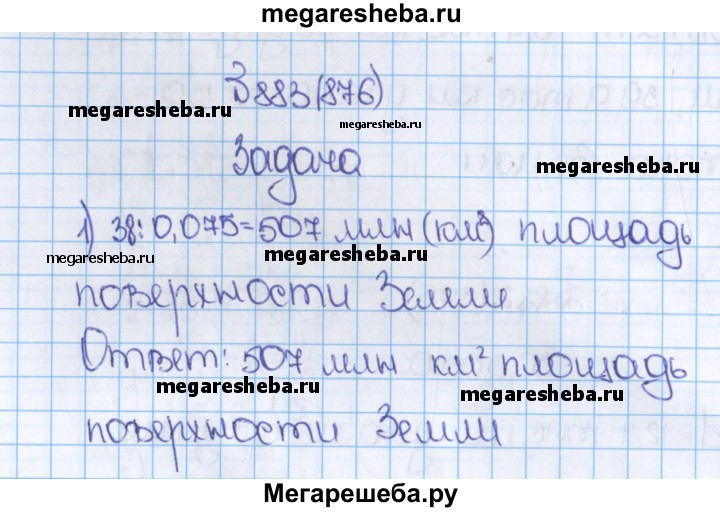 megaresheba.ru
З 883(876)
megaresheba.ru
megaresheba.ru
Задача
megaresheba.ru
1) 38:0,075=507 млн (км²) площадь
megaresheba.ru
megaresheba.ru
поверхности Земли
Ответ: 507 млн км² площадь
megaresheba.ru
megaresheba.ru
поверхности Земли
Мегарешеба.ру